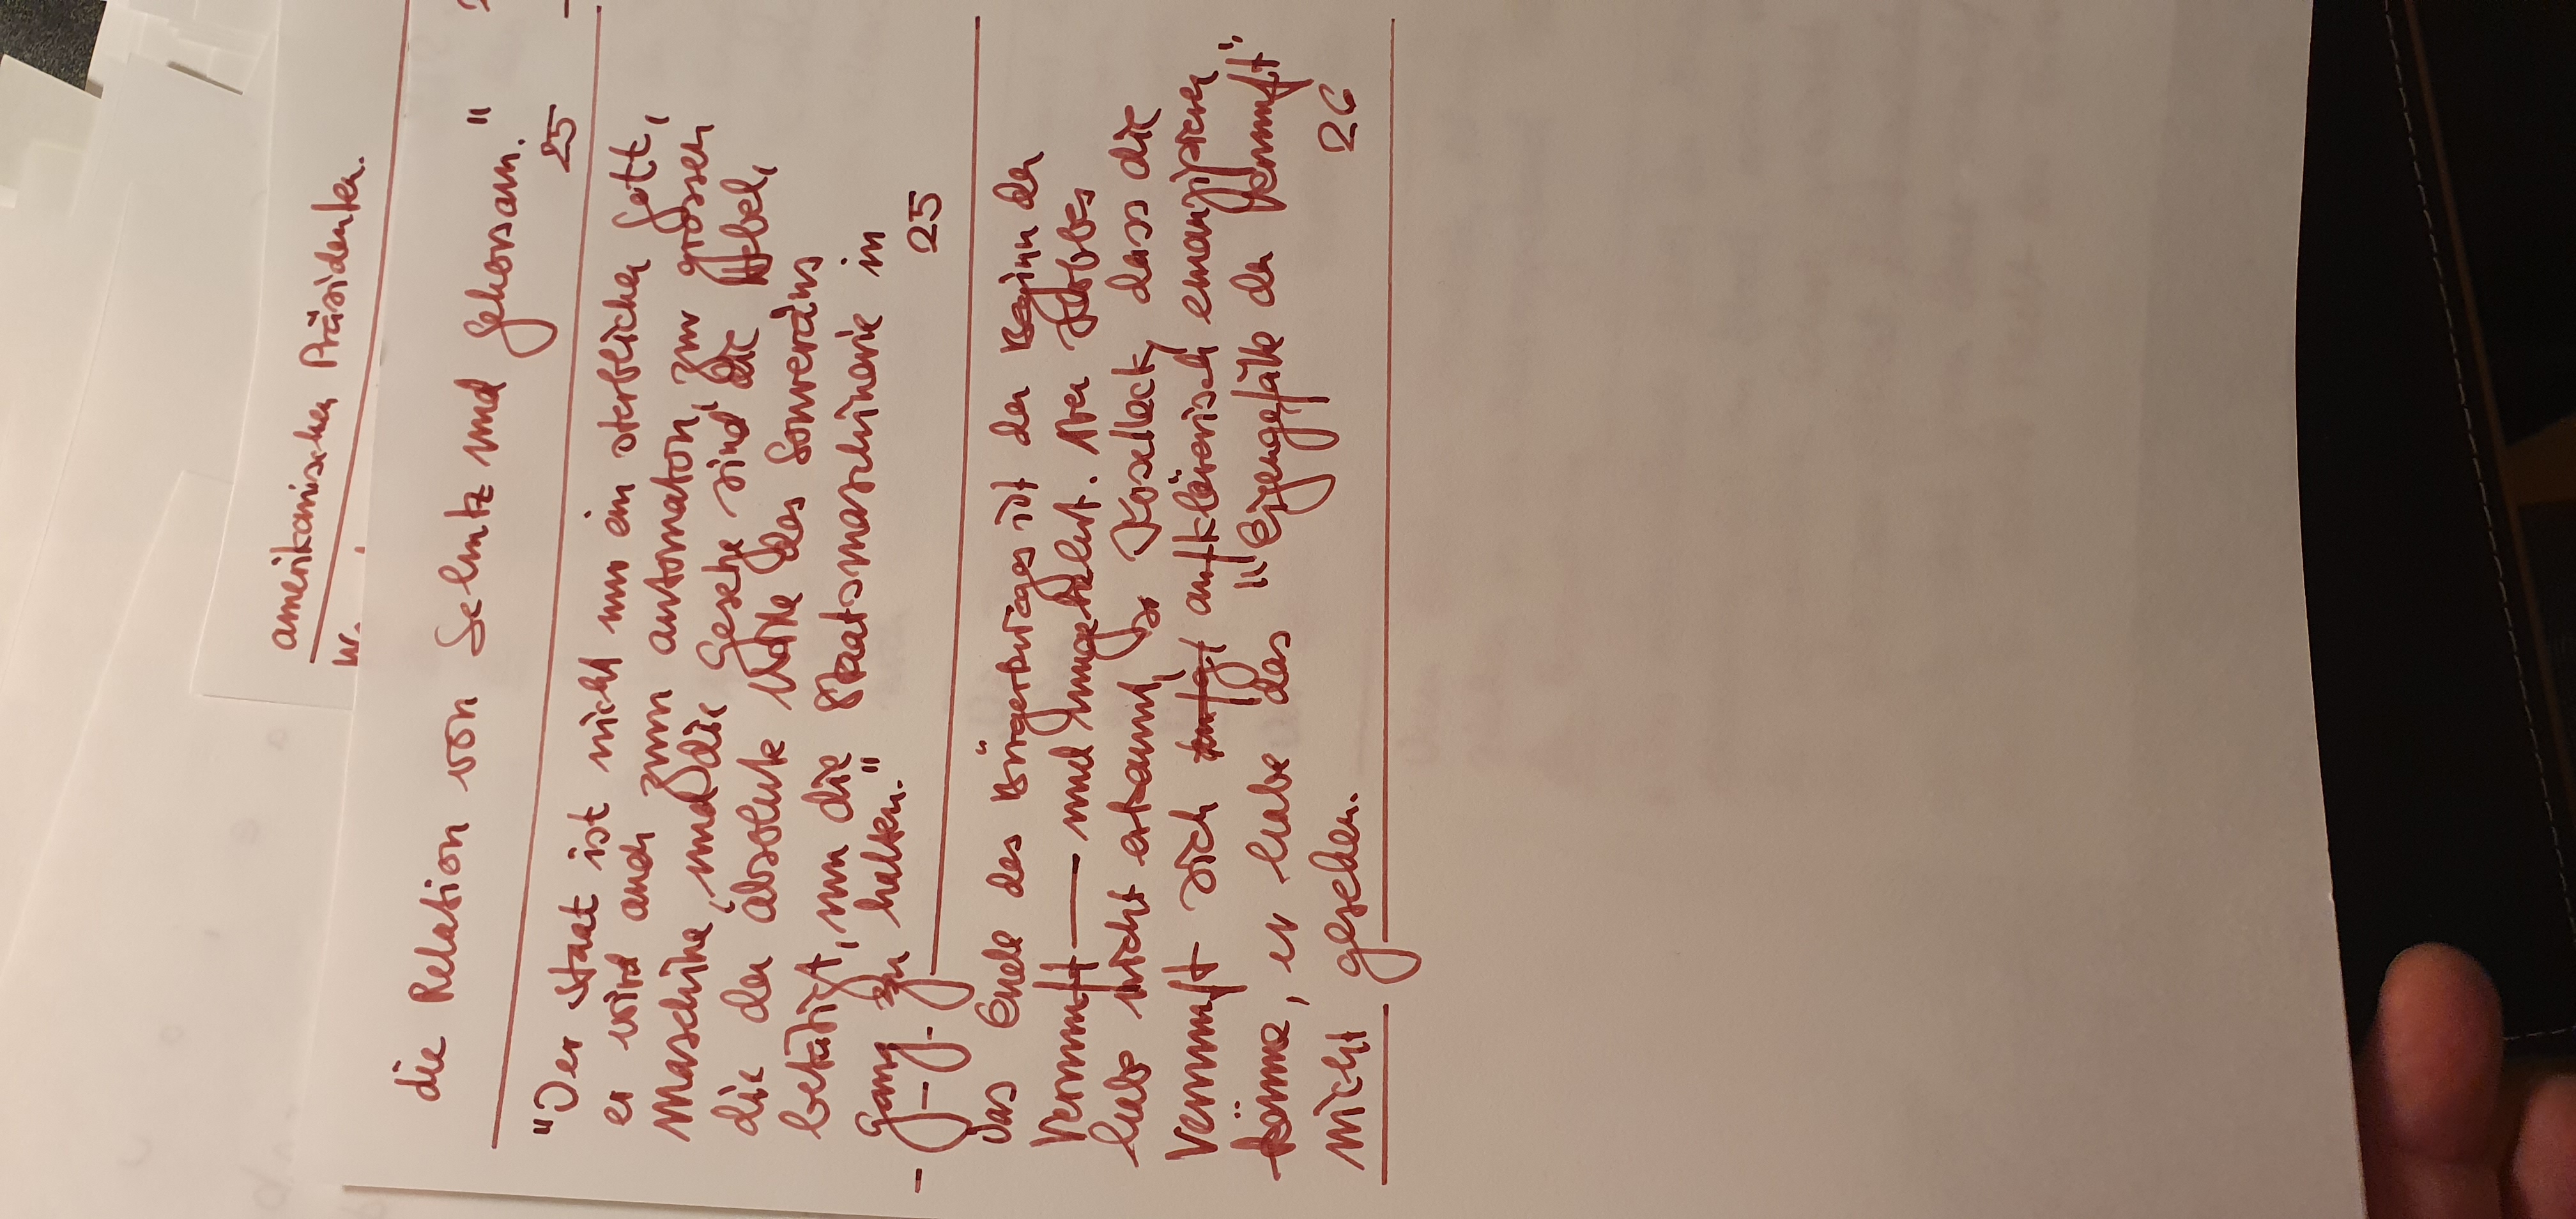 amerikanischer Präsidenten.
W.
die Relation von Schutz und Gehorsam."
25
"Der Staat ist nicht nur ein sterblicher Gott,
er wird auch zum automaton, zur grossen
Maschine, und die Gesetze sind die Hebel,
die der absolute Wille des Souveräns
betätigt, um die Staatsmaschinerie in
Gang zu halten."
25
Das Ende des Bürgerkrieges ist der Beginn der
Vernunft — und umgekehrt. Aber Hobbes
habe nicht erkannt, so Koselleck, dass die
Vernunft sich aufklärerisch emanzipieren
könne, er habe das "Eigengefälle der Vernunft"
nicht gesehen.
26